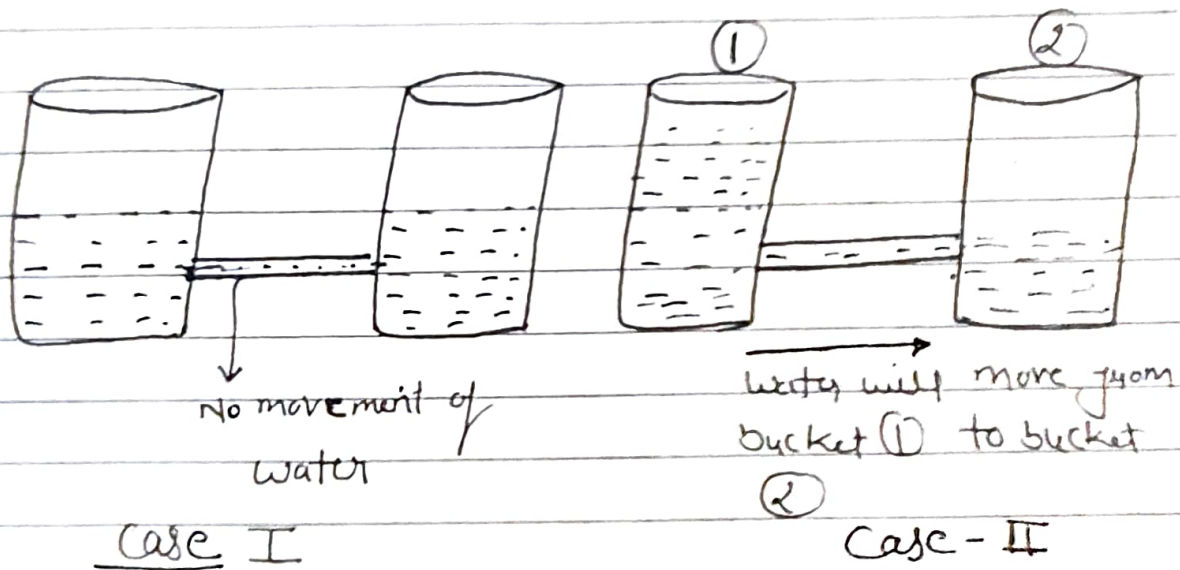 ① ②
No movement of
water
Water will move from
bucket ① to bucket
②
Case I
Case - II